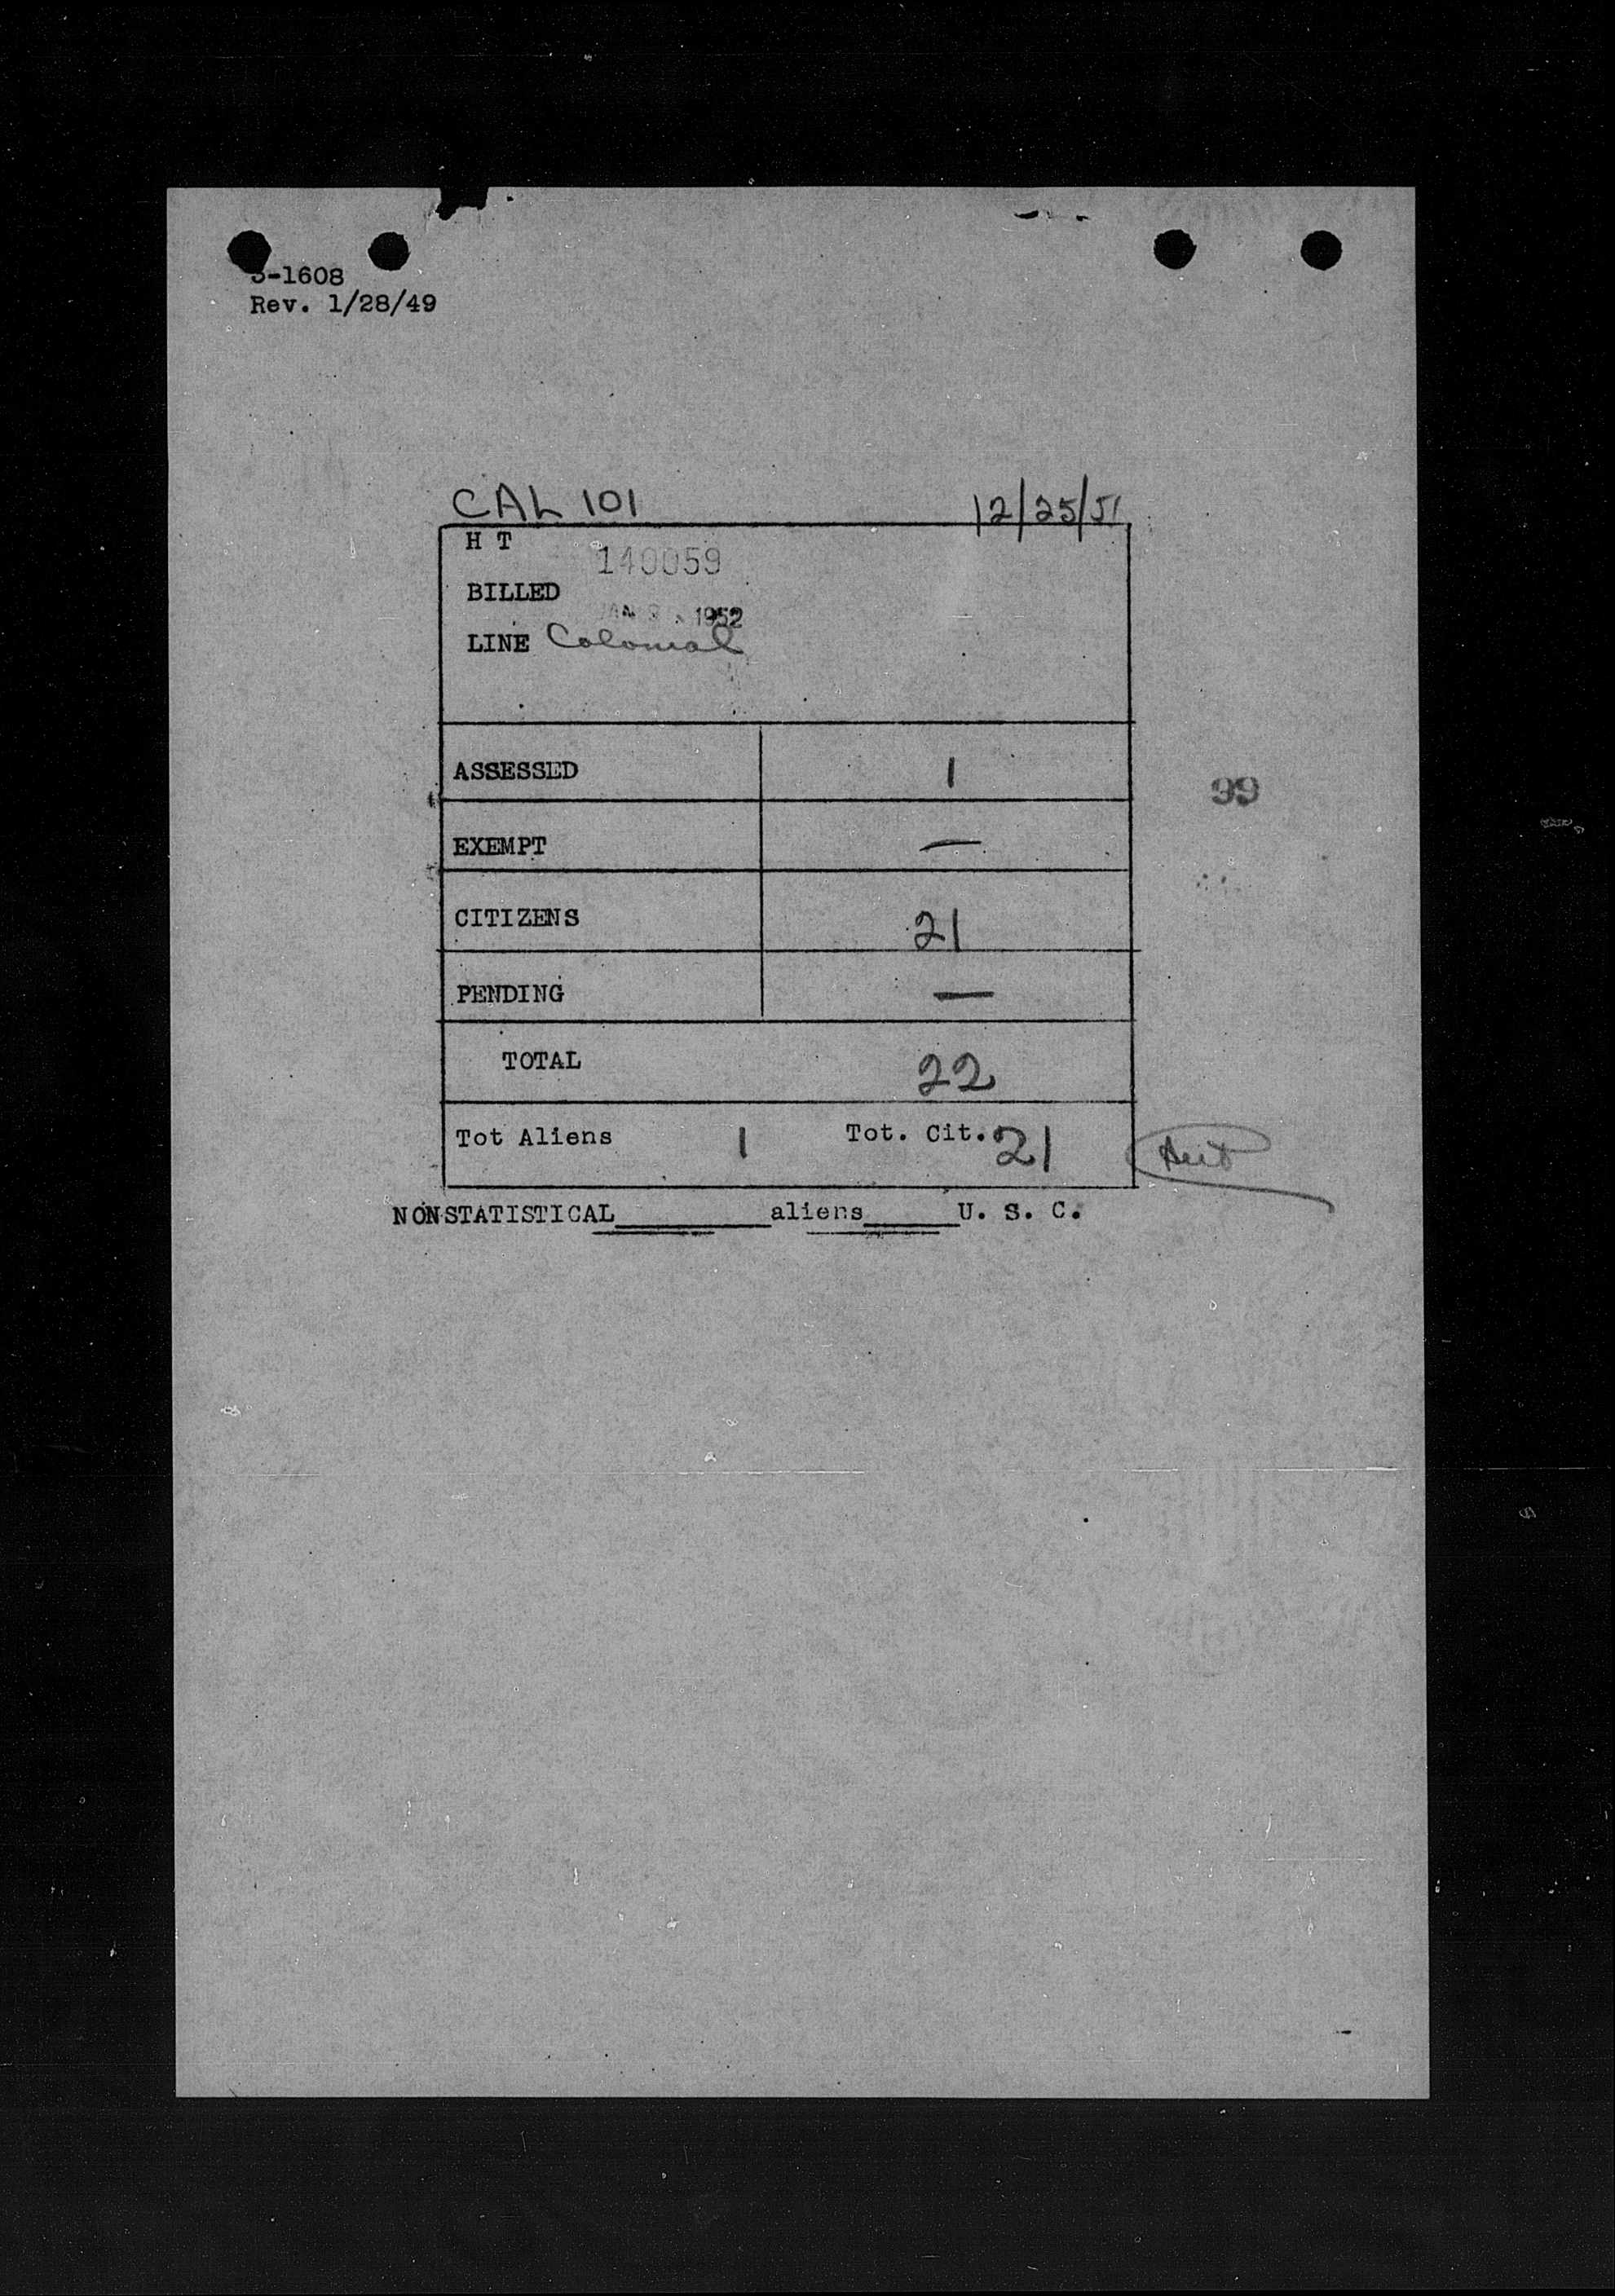 -1608
Rev. 1/28/49
CAL 101 12/25/51
H T 140059
BILLED
1952
LINE Colonial
ASSESSED 1
99
EXEMPT —
CITIZENS 21
PENDING —
TOTAL 22
Tot Aliens 1 Tot. Cit. 21
NONSTATISTICAL______aliens____U. S. C.